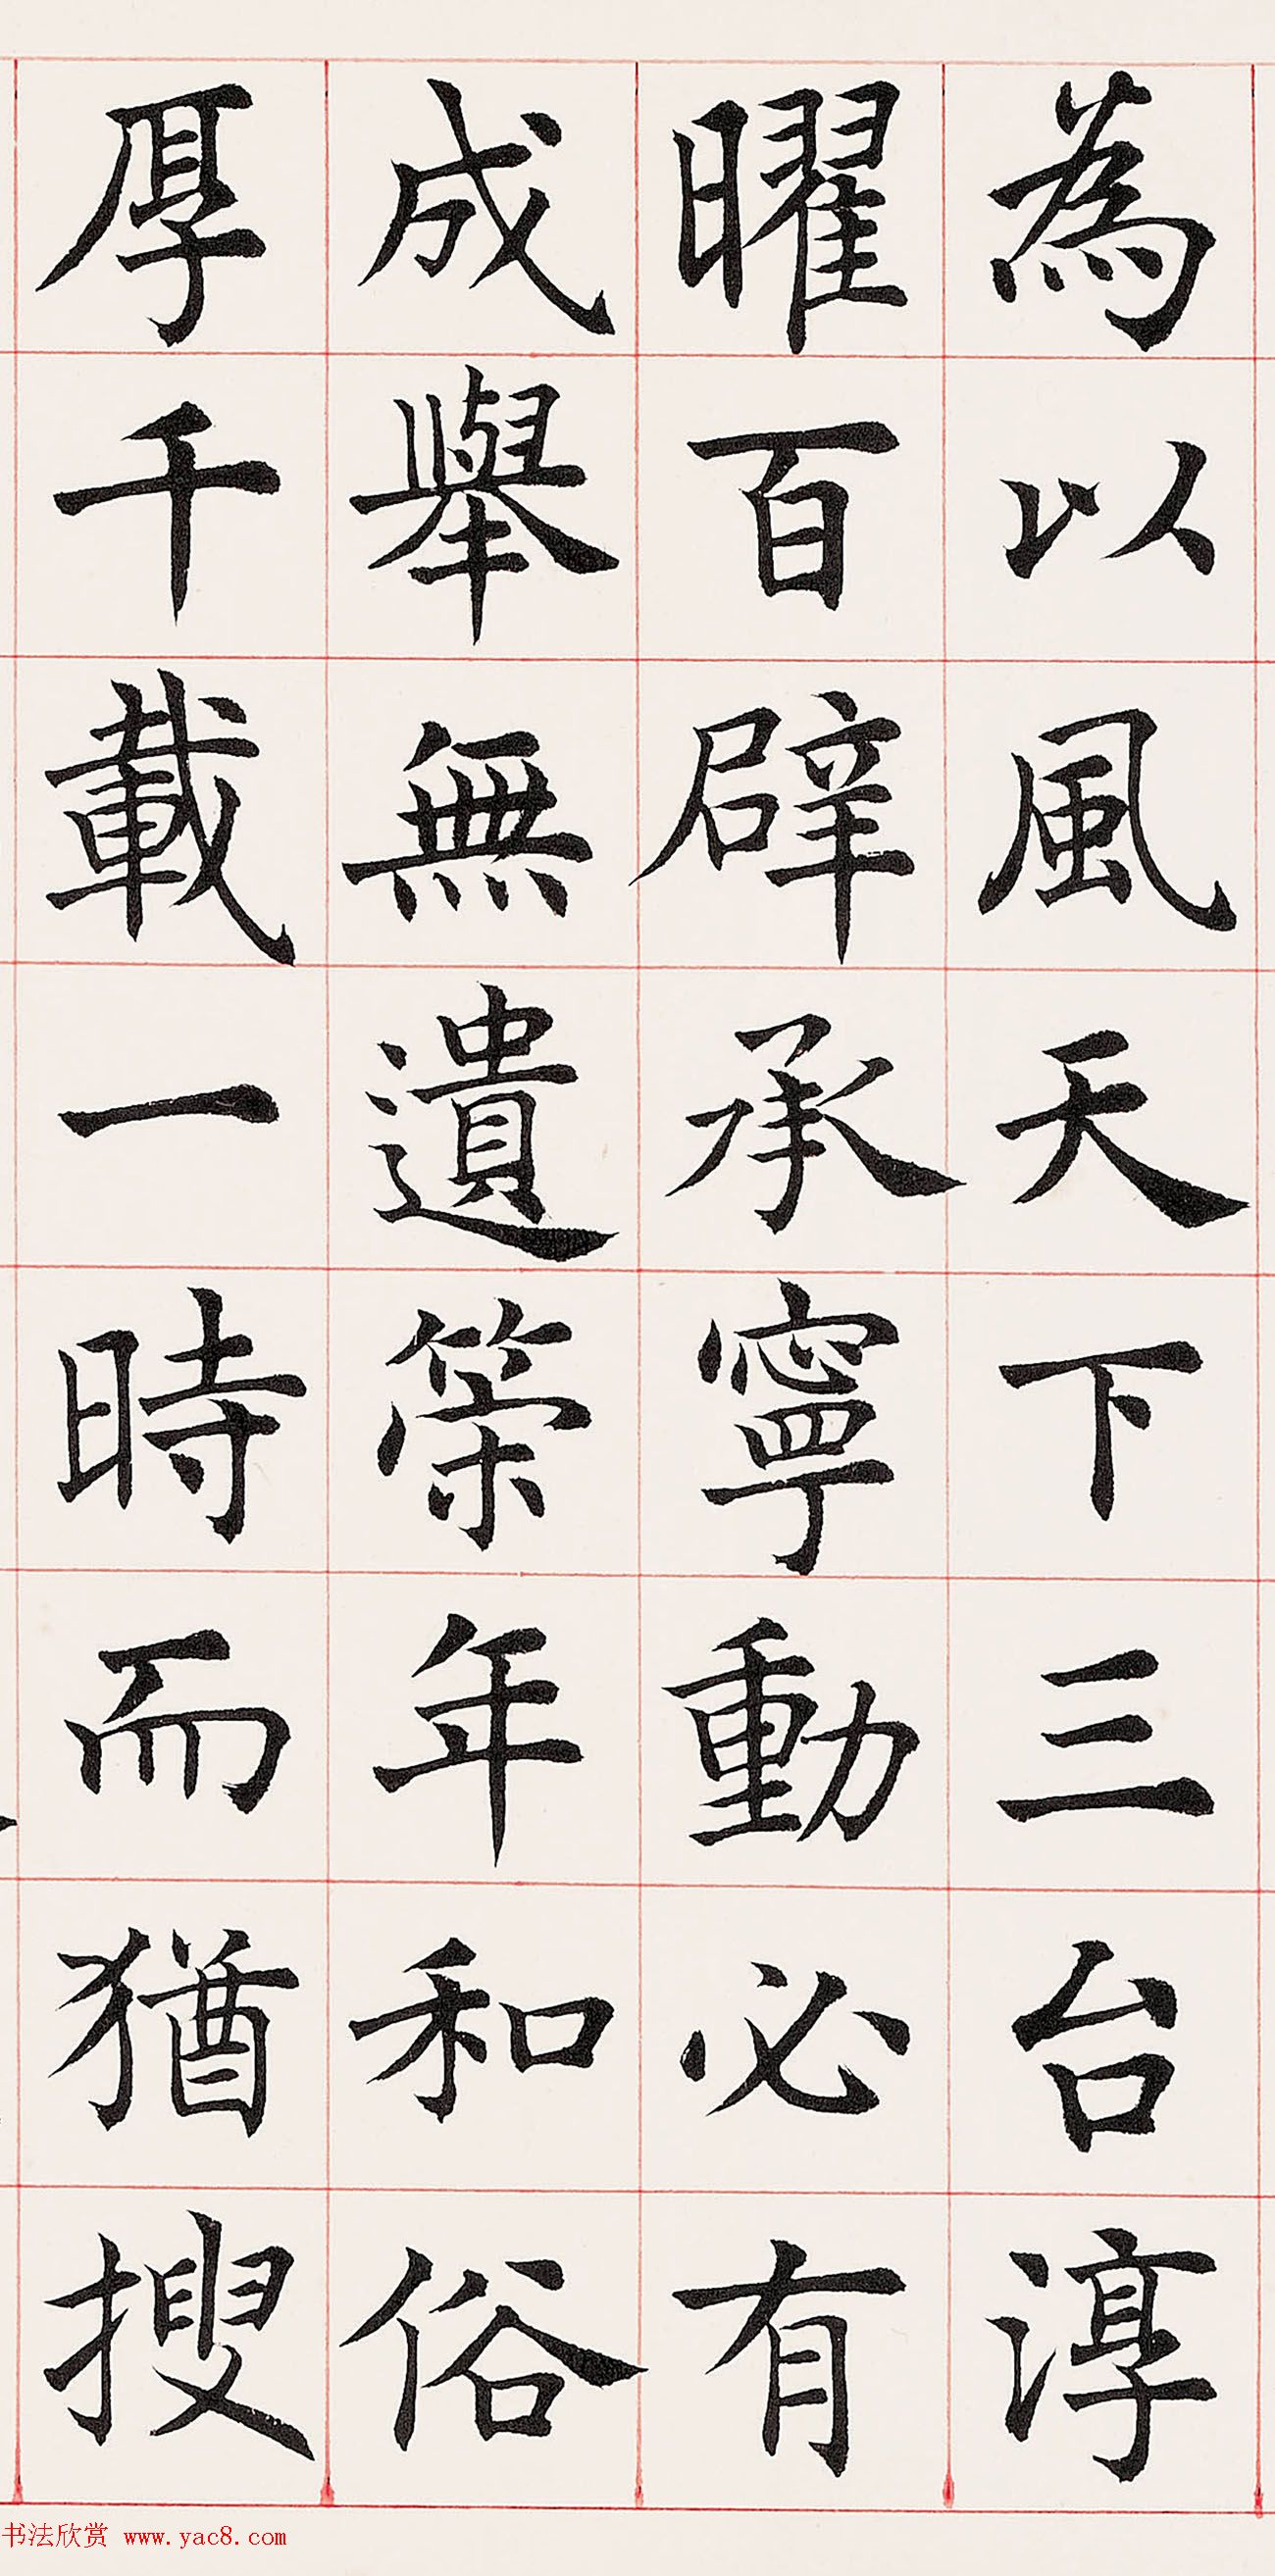 為以風天下三台淳
曜百辟承寧動必有
成舉無遺策年和俗
厚千載一時而猶搜
书法欣赏 www.yac8.com